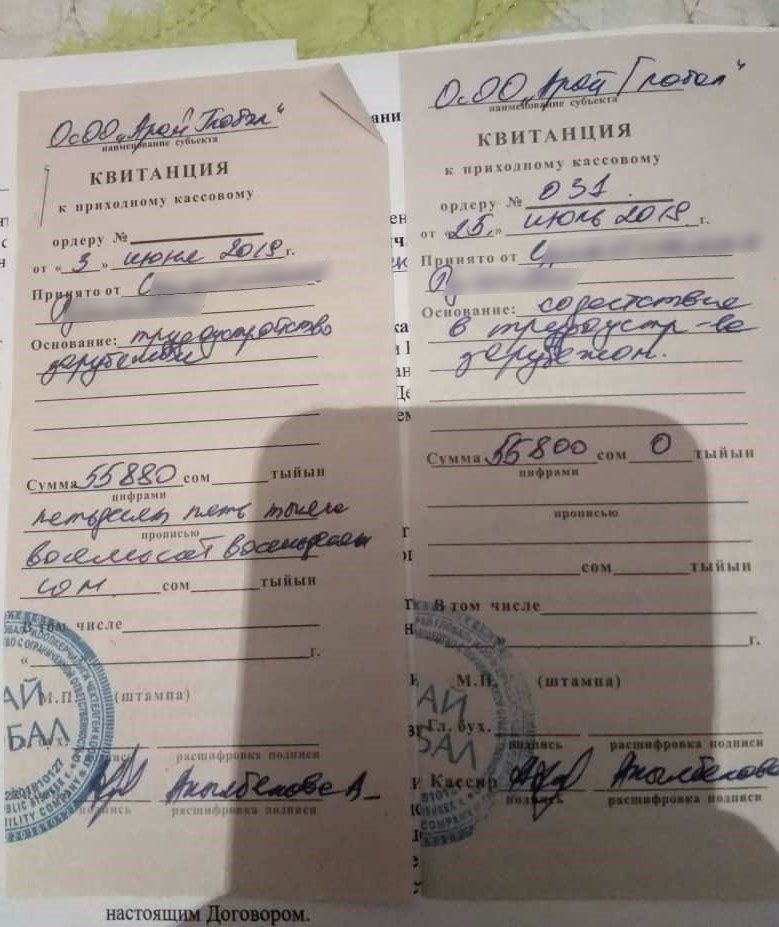 ОсОО „Арай Глобал“
наименование субъекта
КВИТАНЦИЯ
к приходному кассовому
ордеру №
от « 3 » июня 2019 г.
Принято от С
Основание: трудоустройство
зарубежом
Сумма 55880 сом тыйын
цифрами
пятьдесят пять тысяч
прописью
восемьсот восемьдесят
сом сом тыйын
В том числе
« г.
М.П. (штампа)
АЙ
БАЛ
подпись расшифровка подписи
Акылбекова А
подпись расшифровка подписи
ОсОО „Арай Глобал“
наименование субъекта
КВИТАНЦИЯ
к приходному кассовому
ордеру № 031
от « 25 » июль 2019 г.
Принято от С
Основание: содействие
в трудоустр-ве
зарубежом.
Сумма 55800 сом 0 тыйын
цифрами
прописью
сом тыйын
В том числе
г.
М.П. (штампа)
АЙ
БАЛ
Гл. бух.
подпись расшифровка подписи
Кассир Акылбекова
подпись расшифровка подписи
настоящим Договором.